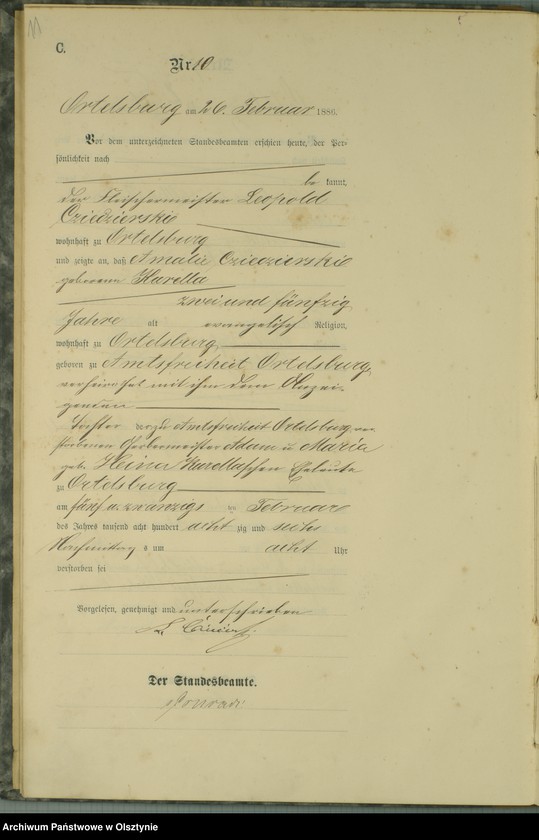 11
C.
Nr. 10
Ortelsburg am 26. Februar 1886.
Vor dem unterzeichneten Standesbeamten erschien heute, der Per-
sönlichkeit nach
be kannt,
der Fleischermeister Leopold
Czieczierski
wohnhaft zu Ortelsburg
und zeigte an, daß Amalie Czieczierski
geborene Karella
zwei und fünfzig
Jahre alt evangelisch Religion,
wohnhaft zu Ortelsburg
geboren zu Amtsfreiheit Ortelsburg,
verheirathet mit ihm dem Anzei-
genden
Tochter der zu Amtsfreiheit Ortelsburg ver
storbenen Gerbermeister Adam u Maria
geb. Heina Karellaschen Eheleute
zu Ortelsburg
am fünf u. zwanzigs ten Februar
des Jahres tausend acht hundert acht zig und sechs
Nachmittag s um acht Uhr
verstorben sei
Vorgelesen, genehmigt und unterschrieben
L.
Der Standesbeamte.
Conradi
Archiwum Państwowe w Olsztynie